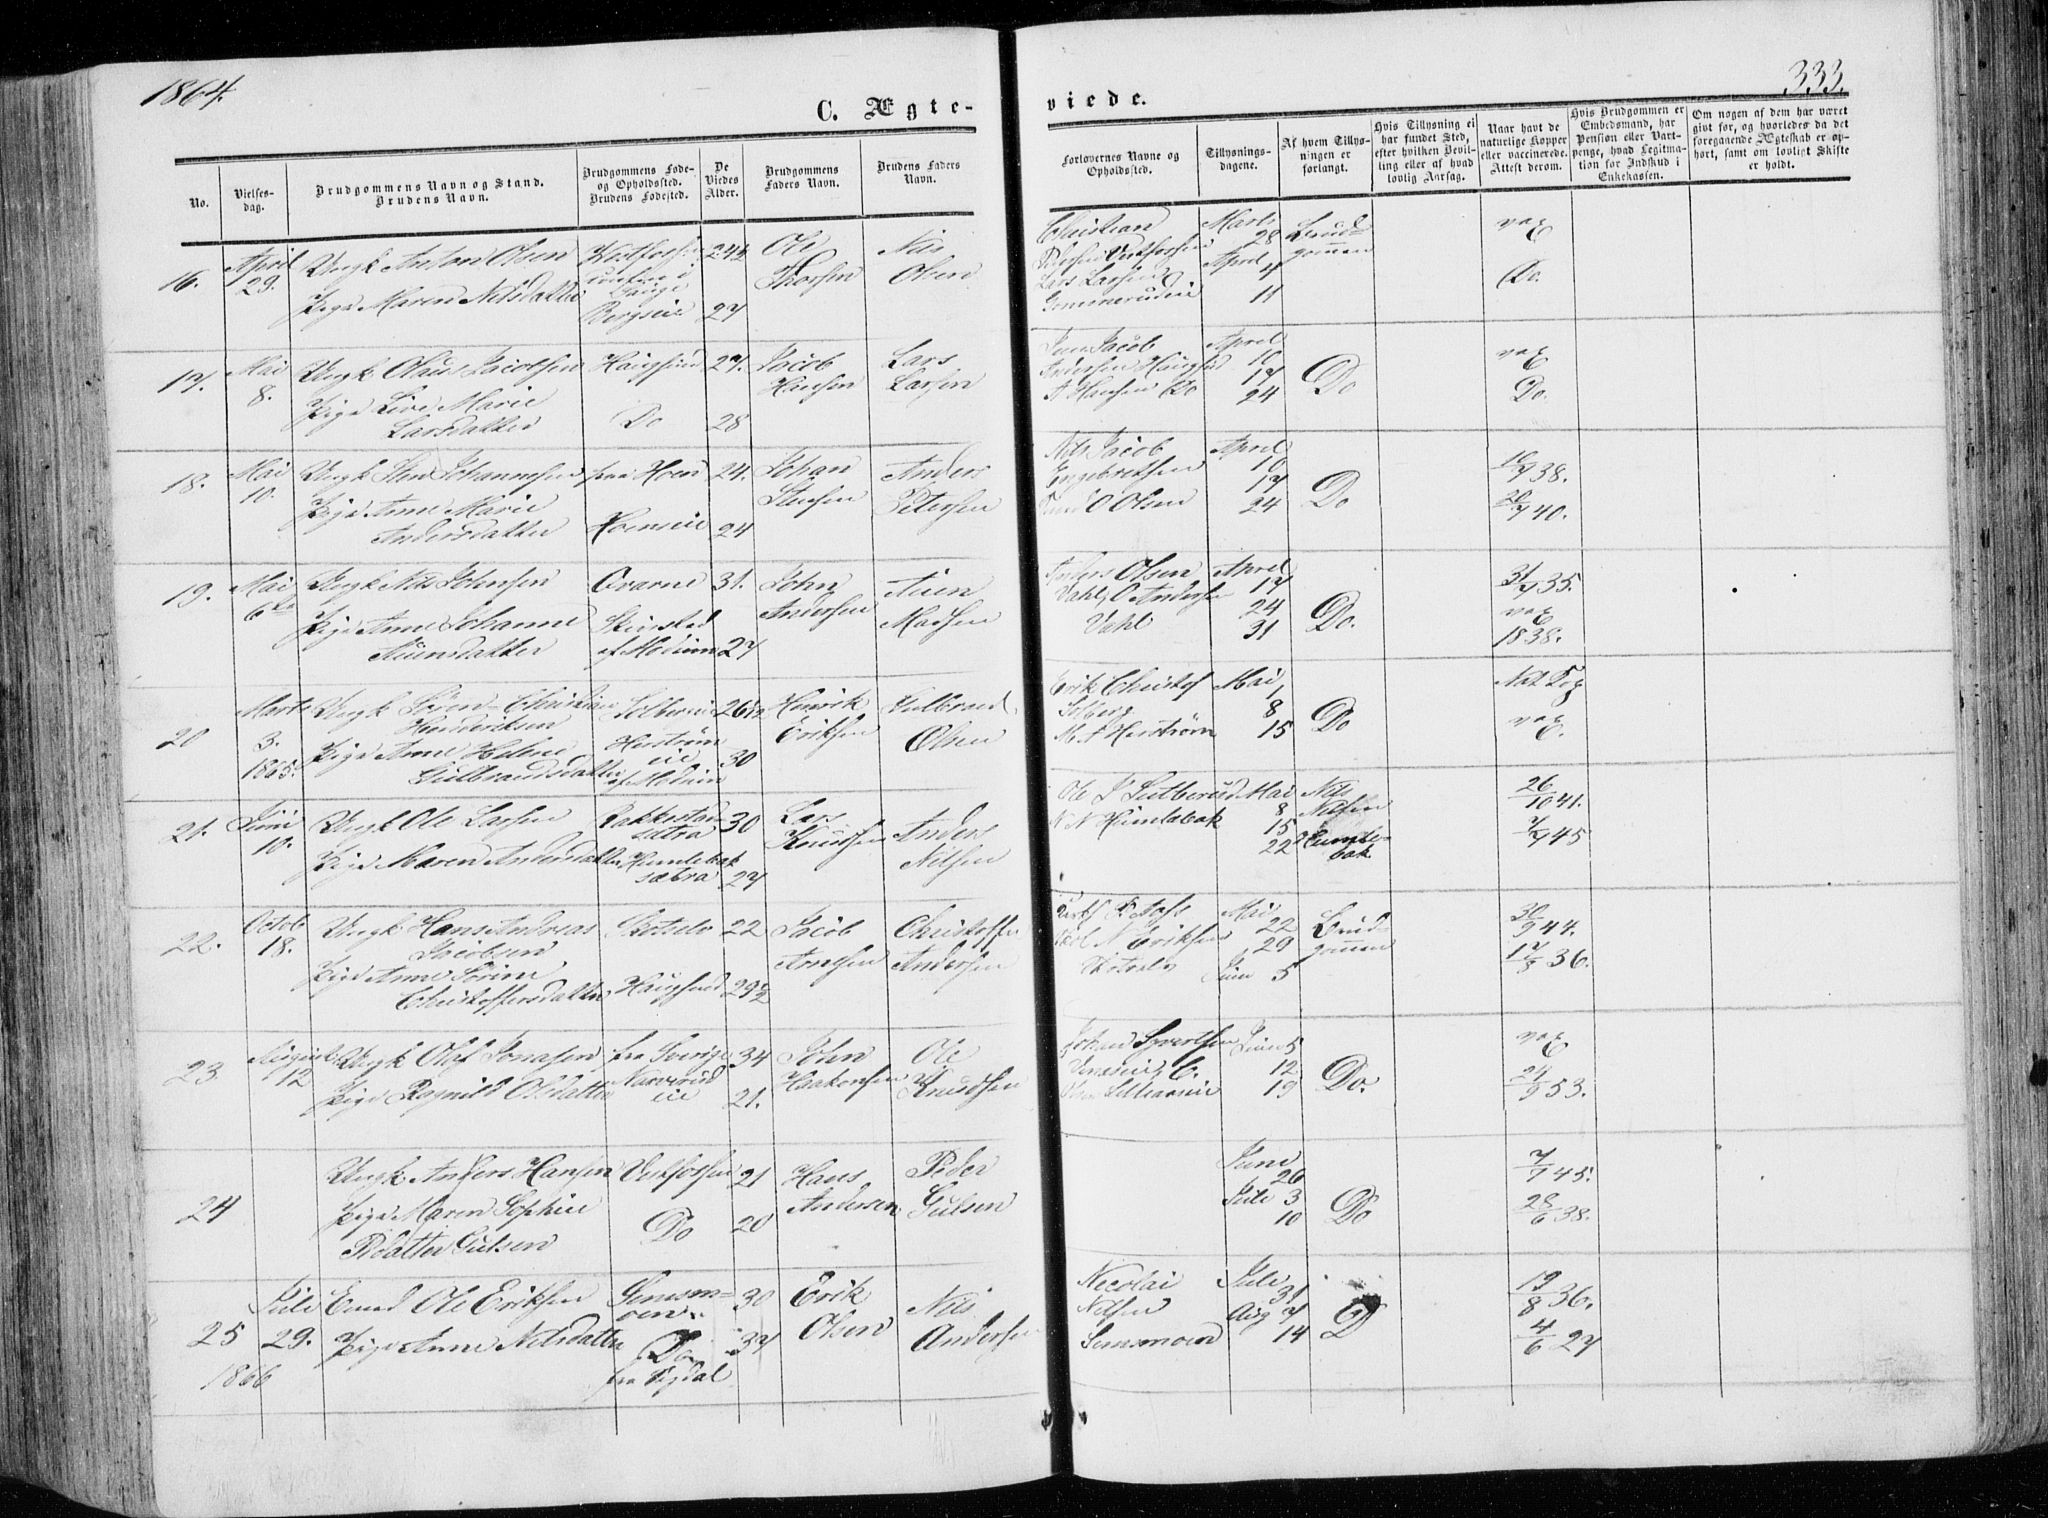 1864.
333.
C. Ægte-
viede.
No.
Vielses-
dag.
Brudgommens Navn og Stand.
Brudens Navn.
Brudgommens Føde-
og Opholdssted.
Brudens Fødested.
De
Viedes
Alder.
Brudgommens
Faders Navn.
Brudens Faders
Navn.
Forlovernes Navne og
Opholdssted.
Tillysnings-
dagene.
Af hvem Tillys-
ningen er
forlangt.
Hvis Tillysning ei
har fundet Sted,
efter hvilken Bevil-
ling eller af hvad
lovlig Aarsag.
Naar havt de
naturlige Kopper
eller vaccinerede.
Attest derom.
Hvis Brudgommen er
Embedsmand, har
Pension eller Vart-
penge, hvad Legitma-
tion for Indskud i
Enkekassen.
Om nogen af dem har været
givt for, og hvorledes da det
foregaaende Ægteskab er op-
hørt, samt om lovligt Skifte
er holdt.
16.
April
29.
Ungk Anton Olsen
Pige Maren Nilsdatter
Bergseie
24½
27
Ole
Thorsen
Nils
Olsen
Christian
Pedersen Vestfossen
Lars Larsen
Marts
28
April 4
11
Brud-
gommen
vax
Do.
17.
Mai
8.
Ungk Olaus Jacobsen
Pige Live Marie
Larsdatter
Haugsund
Do
27.
28
Jacob
Hansen
Lars
Larsen
Jacob
Andersen Haugsund
A Hansen Do
April
10
17
24
Do
vax
Do.
18.
Mai
10.
Ungk Sten Johannesen
Pige Anne Marie
Andersdatter
fra Hoen
Hoenseie
24.
24
Johan
Stensen
Anders
Petersen
Nils Jacob
Engebretsen
O Olsen
April
10
17
24
Do
10/9 38.
20/7 40.
19.
Mai
6te
Ungk Nils Johnsen
Pige Anne Johanne
Auensdatter
Qvarne
Skivsted
af Modum
31.
27
John
Andersen
Auen
Madsen
Anders Olsen
Vahl, O Andersen
Vahl
April
17
24
31
Do.
31/7 35.
vax
1838.
20
Marts
3.
1865.
Ungk Sören Christian
Hendriksen
Pige Anne Helene
Gulbrandsdatter
Solbergeie
Herstrøm
eie
af Modum
26½
30
Henrik
Eriksen
Gulbrand
Olsen
Erik Christof
Solberg
M A Herstrøm
Mai 1
8
15
Do
Nat Kop
vax
21.
Juni
10.
Ungk Ole Larsen
Pige Maren Andersdatter
Bakkestad
sætra
Humlebæk
sæbra
30
27
Lars
Knudsen
Anders
Nilsen
N N Humlebæk
Mai
8
15
22
Nils
Nilsen
Humle-
bæk
26/10 41.
7/9 45
22.
Octob
18.
Ungk Hans Andreas
Jacobsen
Pige Anne Sorine
Christoffersdatter
Skotselv
Haugsund
22
29½
Jacob
Arnesen
Christoffer
Andersen
N Eriksen
Skotselv
Mai
22
29
Juni 5
Brud-
gommen
30/9 44.
17/3 36.
23
August
12
Ungk Olaf Jonasen
Pige Ragnild Olsdatter
fra Sverige
Narverud
eie
34
21.
John
Haakonsen
Ole
Knudsen
Johan Syvertsen
Juni 5
12
19
Do.
vax
24/9 53.
24
Ungk Anders Hansen
Pige Maren Sophie
Pedatter Gulsen
Vestfossen
Do
21
20
Hans
Andersen
Peder
Gulsen
Juni
26
Juli 3
10
Do
7/7 45.
28/6 38.
25
Juli
29.
1866
Enkd Ole Eriksen
Pige Anne Nilsdatter
Semsm=
oen
Do
fra Sigdal
30
37
Erik
Olsen
Nils
Andersen
Necolai
Nilsen
Semsmoen
Juli
31
Aug 7
14
D
19/8 36.
4/6 27